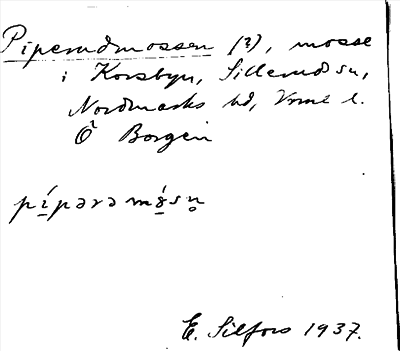 Piperudmossen (?), mosse
i Korsbyn, Sillerud sn,
Nordmarks hd, Vrml l.
Ô Borgen
pí̱pərəmó̱sn̥
E. Silfors 1937.